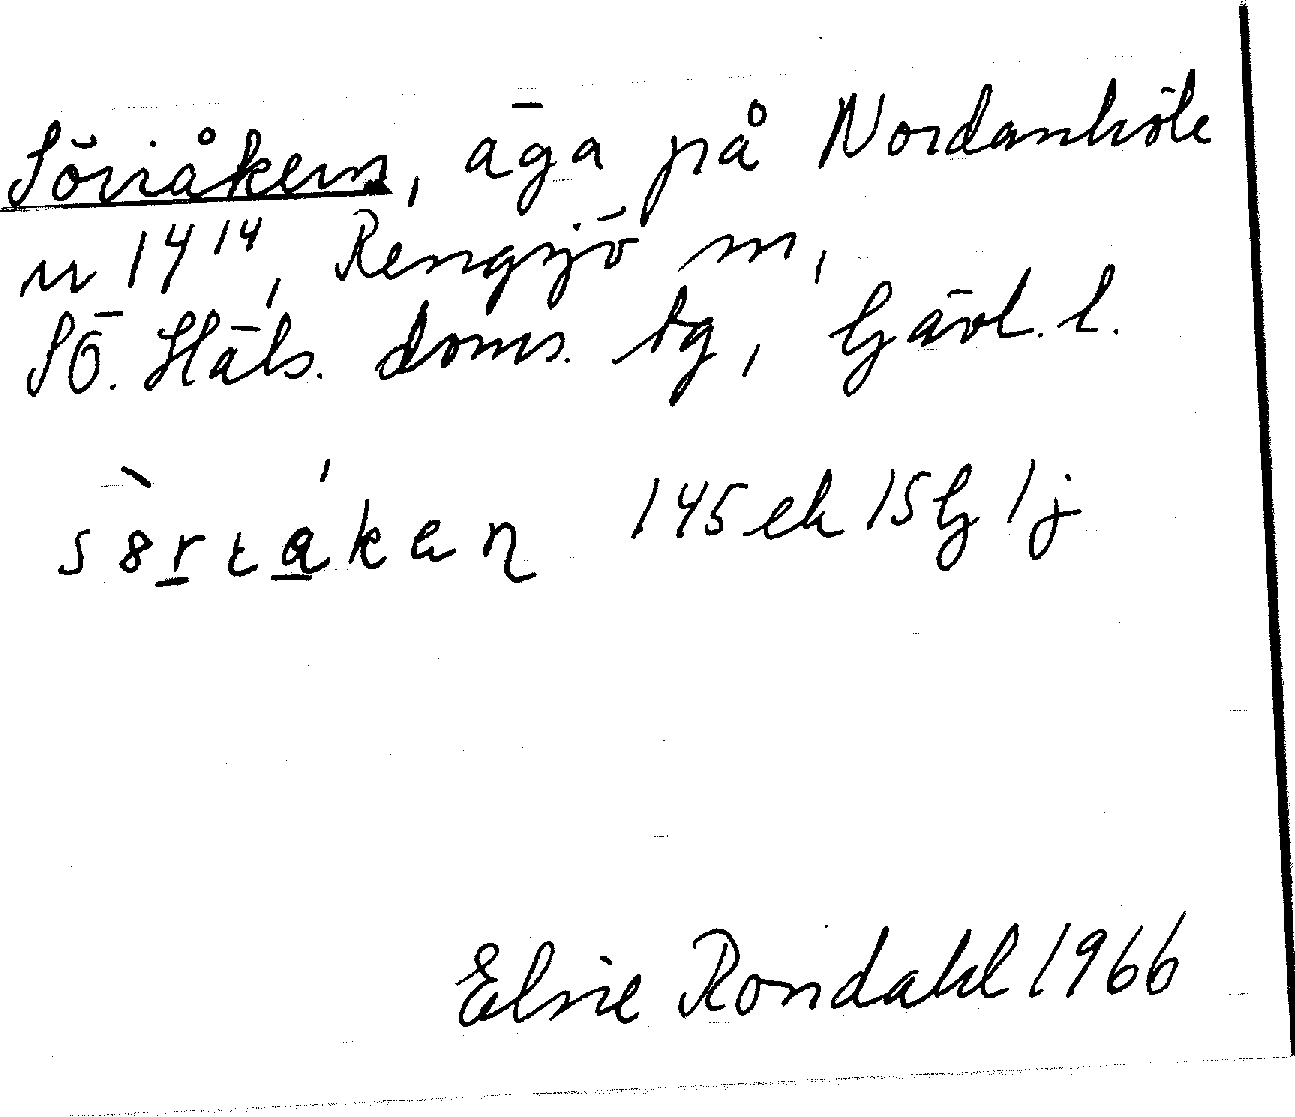 Söriåkern, äga på Nordanhöle
nr 14¹⁴, Rengsjö sn,
SÖ. Häls. doms. tg, Gävl. l.
145 ek 15 G 1 j
Elsie Rondahl 1966